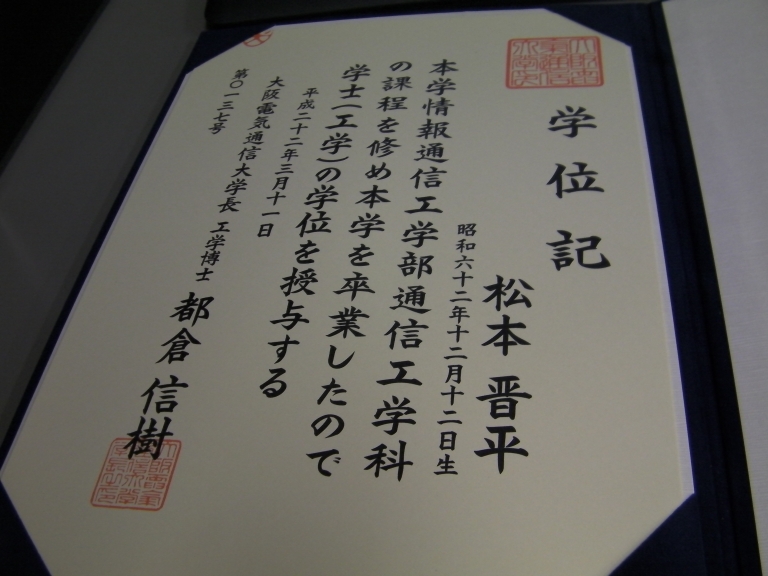 学位記
松本 晋平
昭和六十二年十二月十二日生
本学情報通信工学部通信工学科
の課程を修め本学を卒業したので
学士(工学)の学位を授与する
平成二十二年三月十一日
大阪電気通信大学長 工学博士 都倉 信樹
第〇一三七号